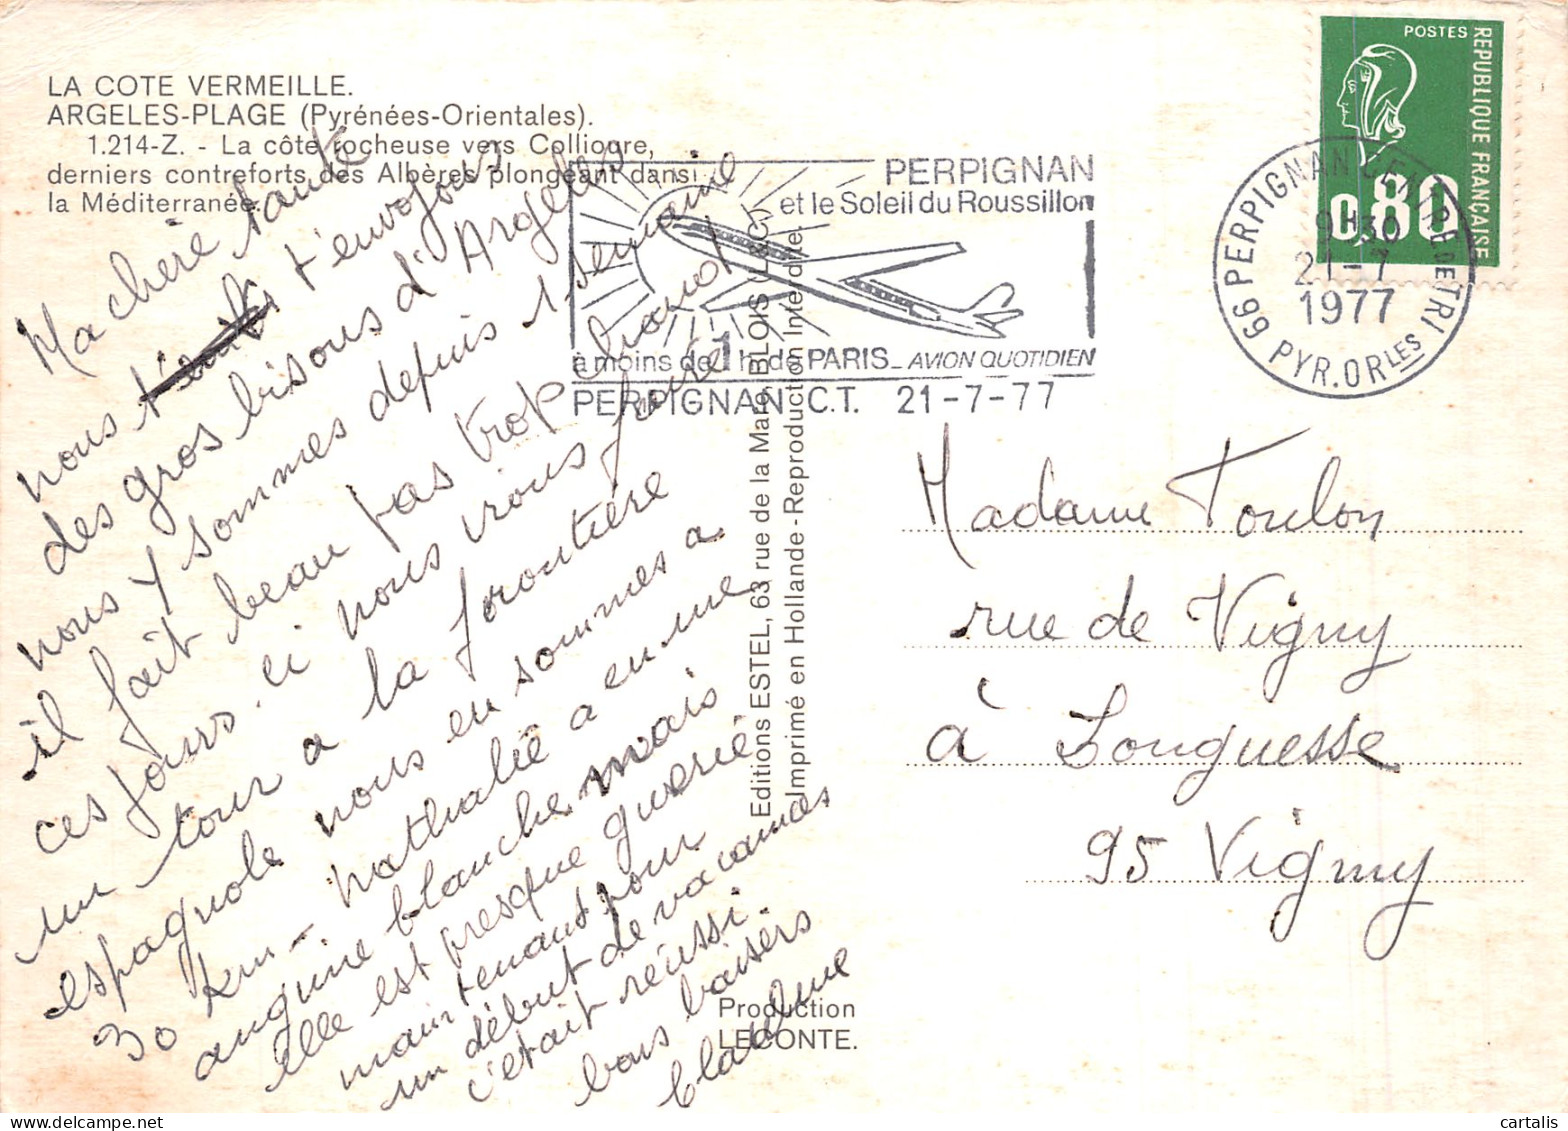 LA COTE VERMEILLE.
ARGELES-PLAGE (Pyrénées-Orientales).
1.214-Z. - La côte rocheuse vers Collioure,
derniers contreforts des Albères plongeant dans
la Méditerranée.
Ma chère tante
nous t'envoyons
des gros bisous d'Argelès
nous y sommes depuis 1 semaine
il fait beau pas trop chaud
ces jours-ci nous irons faire
un tour a la frontière
espagnole nous en sommes a
30 km - nathalie a eu une
angine blanche mais
elle est presque guerie
maintenant pour
un début de vacances
c'etait réussi.
bons baisers
Claudine
Production
LECONTE.
Editions ESTEL, 63 rue de la Mare, BLOIS (L.-&-C.)
Imprimé en Hollande - Reproduction Interdite.
PERPIGNAN
et le Soleil du Roussillon
à moins de 1 h. de PARIS_ AVION QUOTIDIEN
PERPIGNAN C.T. 21-7-77
POSTES
REPUBLIQUE FRANÇAISE
0,80
66 PERPIGNAN CENTRE DE TRI
9H30
21-7
1977
PYR.ORLES
Madame Toulon
rue de Vigny
à Longuesse
95 Vigny
cartalis